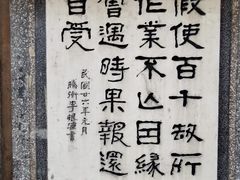 假使百千劫所
作業不亡因緣
會遇時果報還
自受
民國廿六年元月
騰衝李根源書